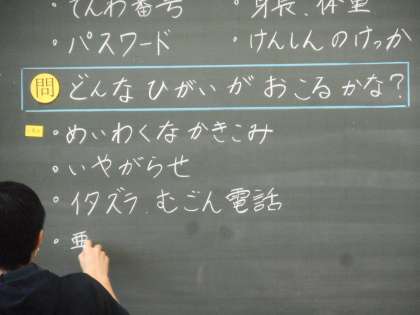 ・でんわ番号 ・身長、体重
・パスワード ・けんしんのけっか
問 どんなひがいがおこるかな？
・めいわくなかきこみ
・いやがらせ
・イタズラ、むごん電話
・亜